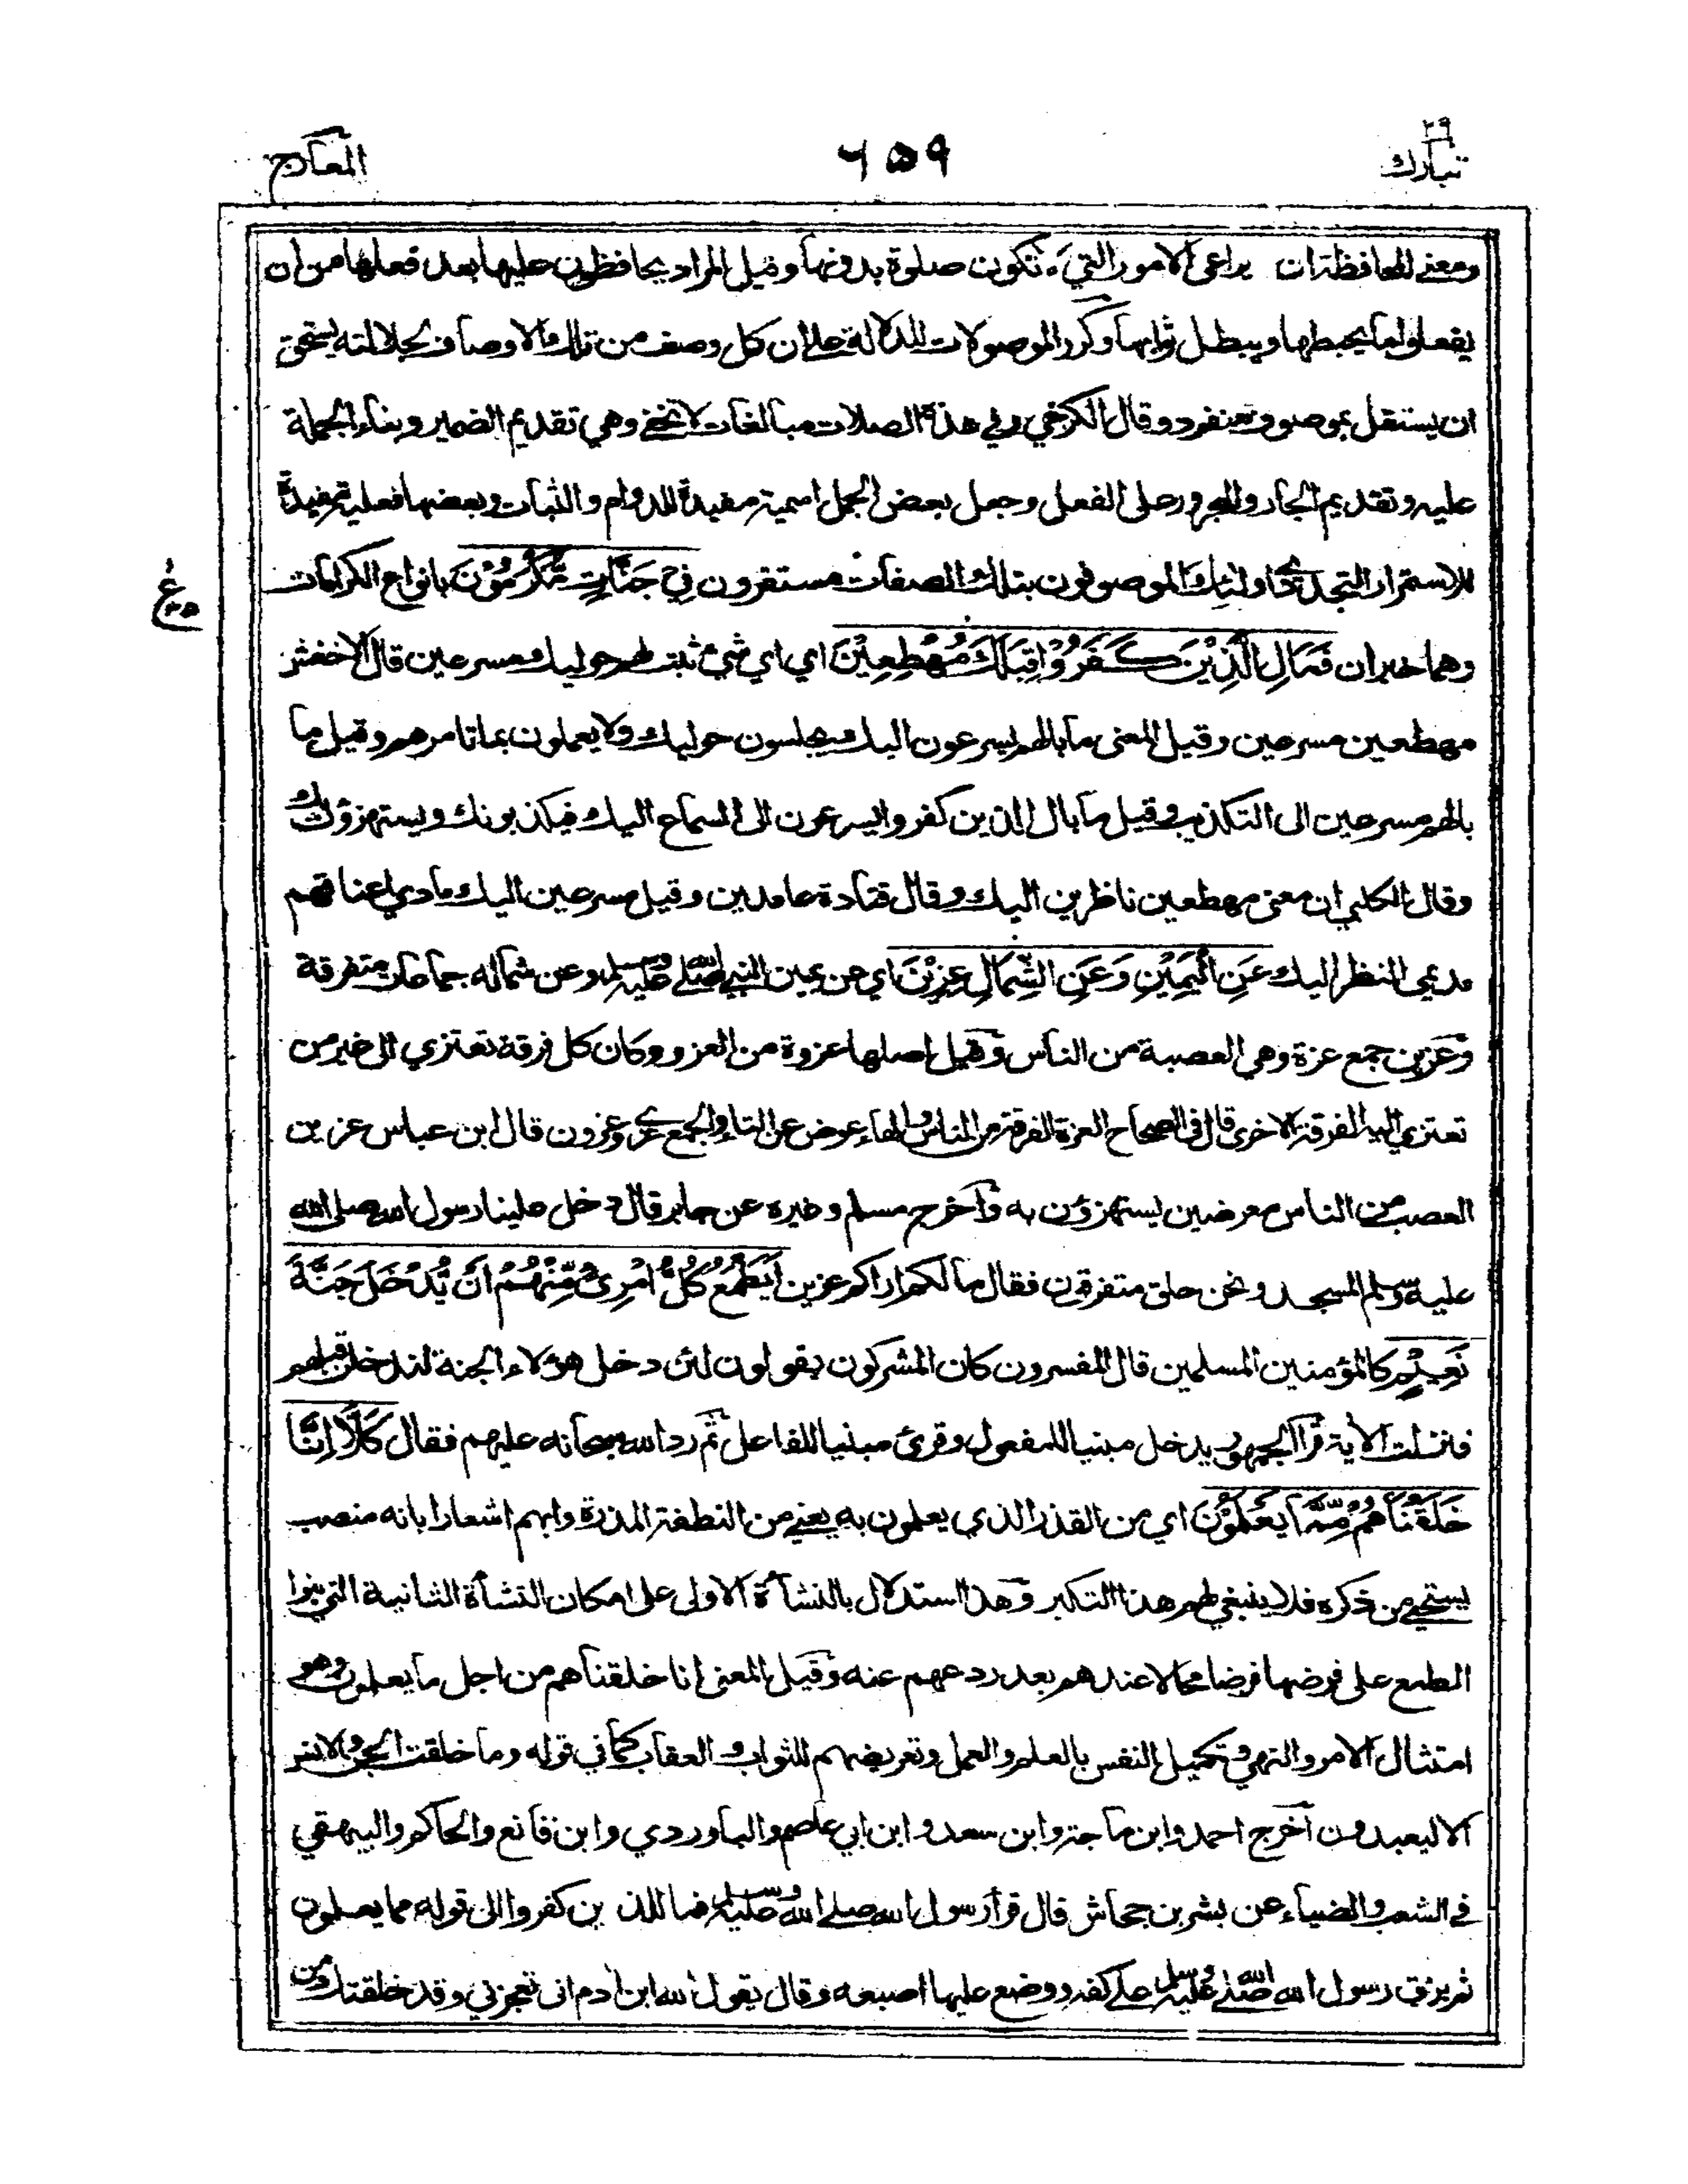 ٢٩
تبارك
٦٥٩
المعارج
ومعنى المحافظة ان يراعى الامور التي لا تكون صلوة بدونها وقيل المراد يحافظون عليها بعد فعلها من ان
يفعلوا ما يحبطها ويبطل ثوابها وكرر الموصولات للدلالة على ان كل وصف من تلك الاوصاف بجلالته يستحق
ان يستقل بموصوف منفرد وقال الكرخي وفي هذه الصلات مبالغات لا تخفى وهي تقديم الضمير وبناء الجملة
عليه وتقديم الجار والمجرور على الفعل وجعل بعض الجمل اسمية مفيدة للدوام والثبات وبعضها فعلية مفيدة
للاستمرار التجددي اولئك الموصوفون بتلك الصفات مستقرون فِي جَنَّاتٍ مُّكْرَمُوْنَ بانواع الكرامات
ع
وهما خبران فَمَالِ الَّذِيْنَ كَفَرُوْا قِبَلَكَ مُهْطِعِيْنَ اي اي شئ ثبت لهم حواليك مسرعين قال الاخفش
مهطعين مسرعين وقيل المعنى ما بالهم يسرعون اليك يجلسون حواليك ولا يعملون بما تامرهم وقيل ما
بالهم مسرعين الى التكذيب وقيل ما بال الذين كفروا يسرعون الى السماع اليك فيكذبونك ويستهزؤن بك
وقال الكلبي ان معنى مهطعين ناظرين اليك وقال قتادة عامدين وقيل مسرعين اليك مادي اعناقهم
مديمي النظر اليك عَنِ الْيَمِيْنِ وَعَنِ الشِّمَالِ عِزِيْنَ اي عن يمين النبي صلى الله عليه وسلم وعن شماله جماعات متفرقة
وعزين جمع عزة وهي العصبة من الناس وقيل اصلها عزوة من العزو وكان كل فرقة تعتزي الى غير من
تعتزي اليه الفرقة الاخرى قال في الصحاح العزة الفرقة من الناس والهاء عوض عن التاء والجمع عزى وعزون قال ابن عباس عزين
العصب من الناس معرضين يستهزؤن به وأخرج مسلم وغيره عن جابر قال دخل علينا رسول الله صلى الله
عليه وسلم المسجد ونحن حلق متفرقون فقال ما لكم اراكم عزين أَيَطْمَعُ كُلُّ امْرِئٍ مِّنْهُمْ أَنْ يُّدْخَلَ جَنَّةَ
نَعِيْمٍ كالمؤمنين المسلمين قال المفسرون كان المشركون يقولون لئن دخل هؤلاء الجنة لندخلن قبلهم
فنزلت الآية قرأ الجمهور يدخل مبنيا للمفعول وقرئ مبنيا للفاعل ثم رد الله سبحانه عليهم فقال كَلَّا إِنَّا
خَلَقْنَاهُمْ مِّمَّا يَعْلَمُوْنَ اي من القذر الذي يعلمون به يعني من النطفة المذرة وابهم اشعارا بانه منصب
يستحيى من ذكره فلا ينبغي لهم هذا التكبر وهذا استدلال بالنشأة الاولى على امكان النشأة الثانية التي بنوا
الطمع على فرضها فرضا محالا عندهم بعد ردعهم عنه وقيل المعنى انا خلقناهم من اجل ما يعلمون وهو
امتثال الامر والنهي وتكميل النفس بالعلم والعمل وتعريضهم للثواب والعقاب كما في قوله وما خلقت الجن والانس
الا ليعبدون أخرج احمد وابن ماجة وابن سعد وابن ابي عاصم والباوردي وابن قانع والحاكم والبيهقي
في الشعب والضياء عن بشر بن جحاش قال قرأ رسول الله صلى الله عليه وسلم فمال الذين كفروا الى قوله مما يعلمون
ثم بزق رسول الله صلى الله عليه وسلم على كفه ووضع عليها اصبعه وقال يقول الله ابن ادم انى تعجزني وقد خلقتك من